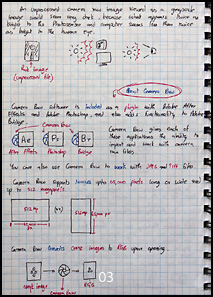 An unprocessed camera raw image viewed as a grayscale
image would seem very dark, because what appears twice as
bright to the Photosensor and computer seems less than twice
as bright to the human eye.
Raw Image
(unprocessed file)
About Camera Raw
Camera Raw software is included as a plugin with Adobe After
Effects and Adobe Photoshop, and also adds functionality to Adobe
Bridge.
Camera Raw
Ae
Ps
Br
After Effects
Photoshop
Bridge
Camera Raw gives each of
these applications the ability to
import and work with camera
raw files.
You can also use Camera Raw to work with JPEG and TIFF files
Camera Raw supports images upto 65,000 pixels long or wide and
up to 512 megapixels.
512 MP
(or)
512 MP
65,000 px
Camera Raw converts CMYK images to RGB upon opening.
03
CMYK image
Camera Raw
RGB